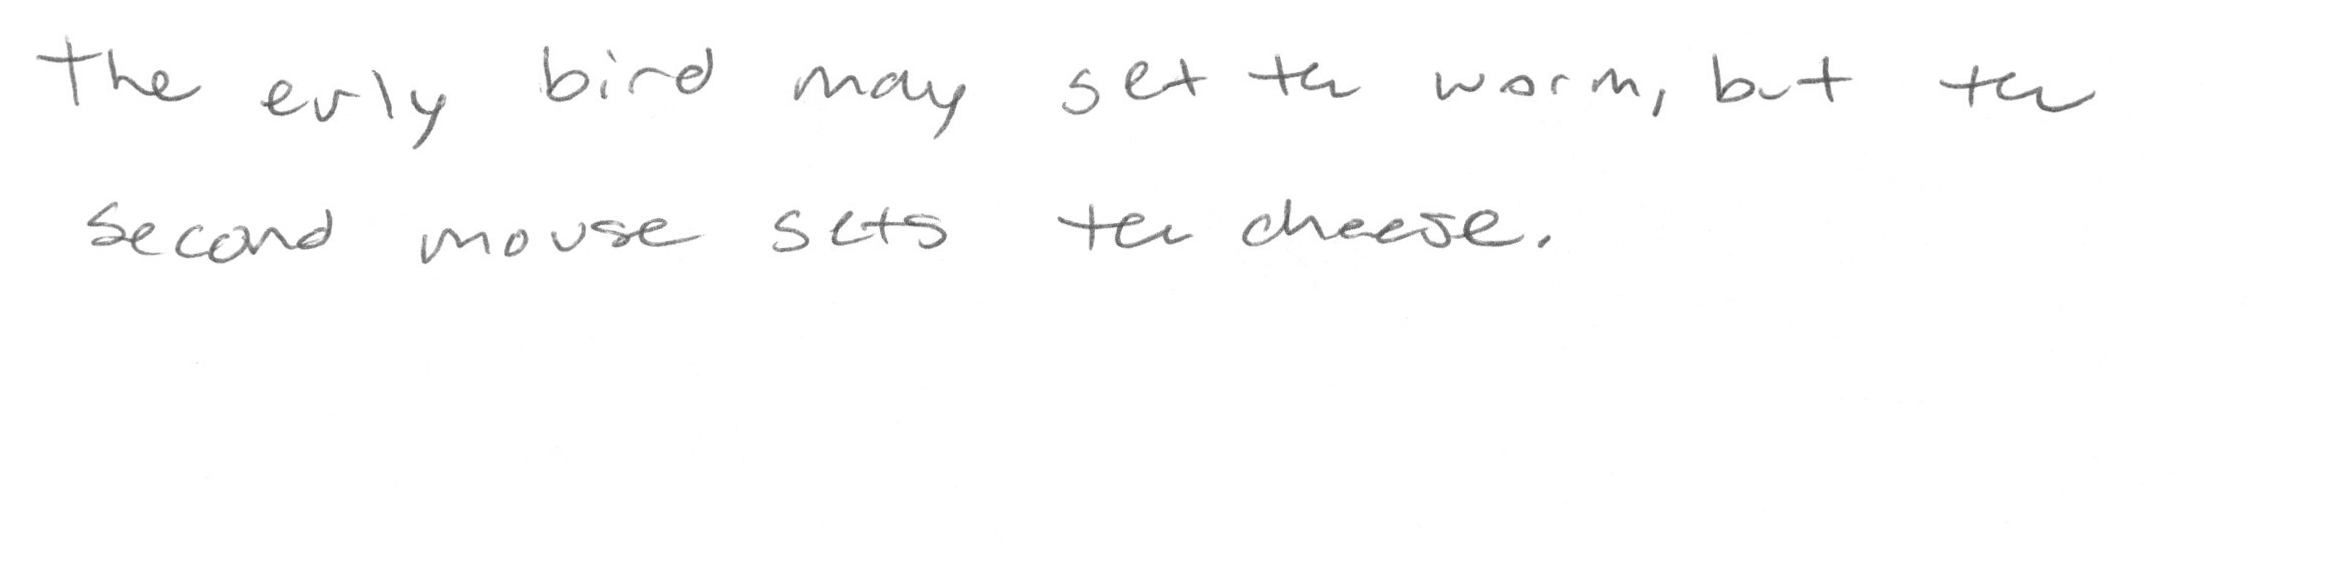 The erly bird may get the worm, but the
second mouse gets the cheese.